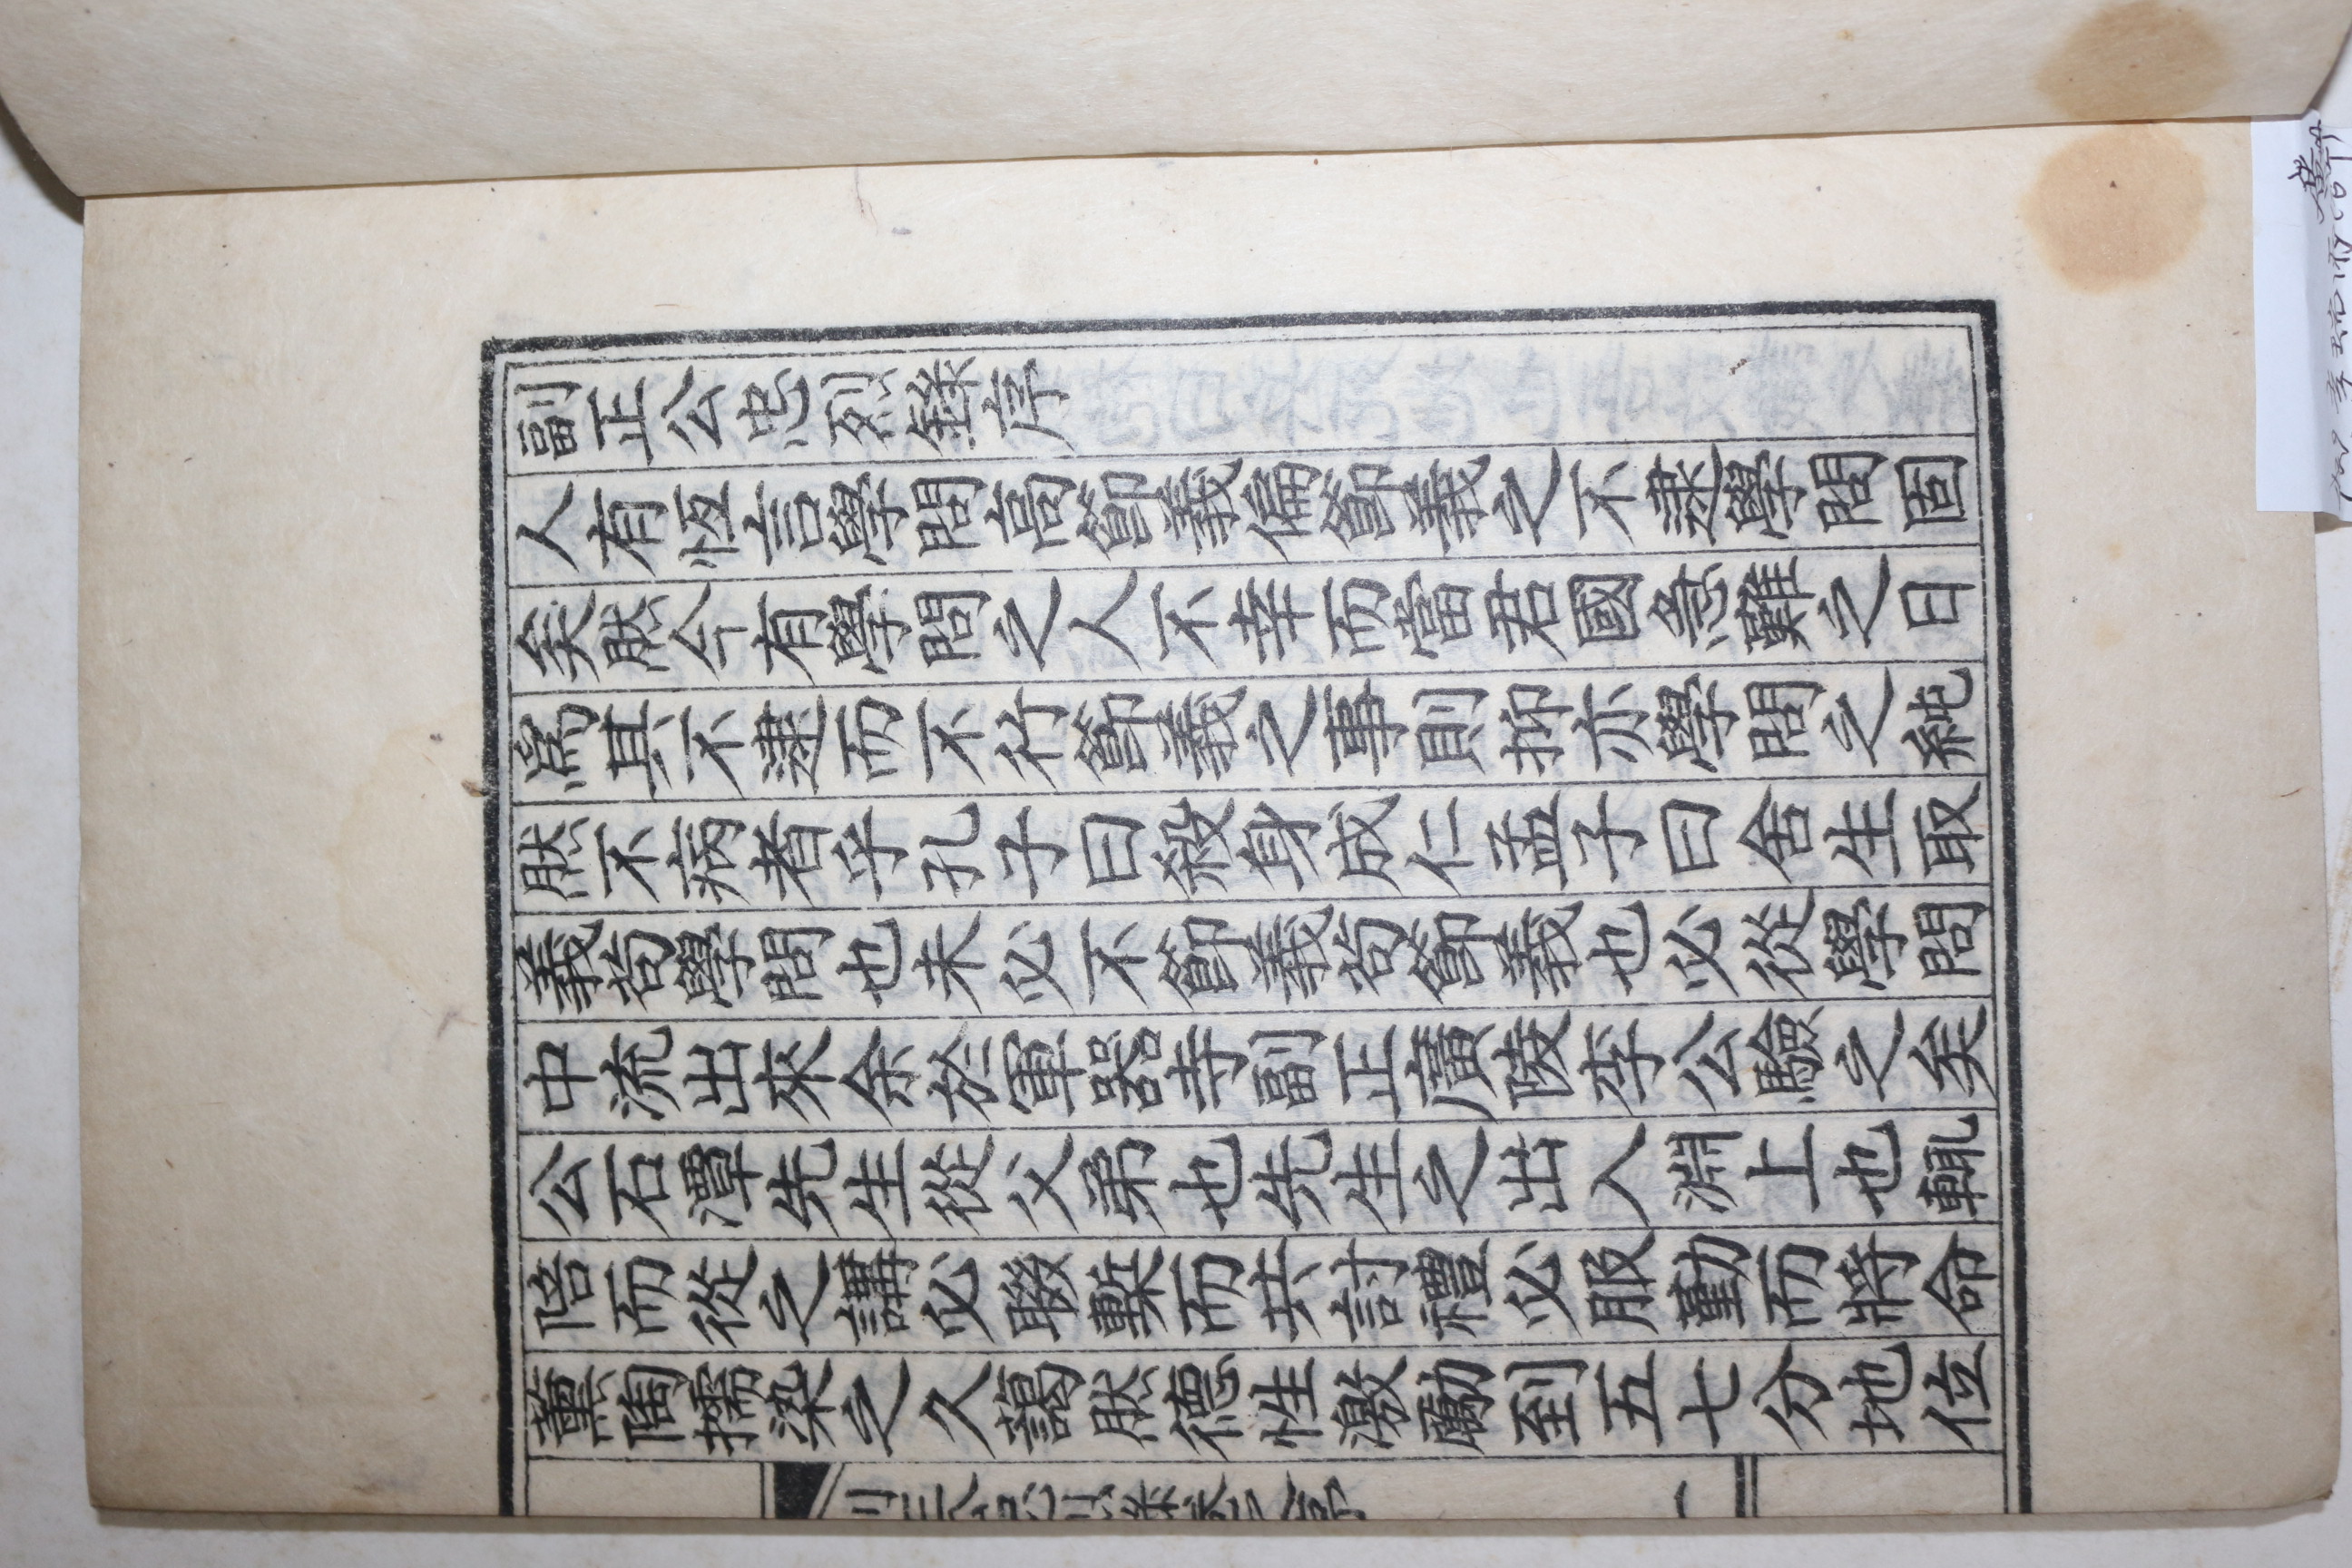 副正公忠烈錄序
人有恆言學問高節義偏節義之不逮學問固
矣然今有學問之人不幸而當君國急難之日
爲其不逮而不行節義之事則抑亦學問之純
然不病者乎孔子曰殺身成仁孟子曰舍生取
義苟學問也未必不節義苟節義也必從學問
中流出來余於軍器寺副正廣陵李公驗之矣
公石潭先生從父弟也先生之出入淵上也輒
陪而從之講必聯槧而共討禮必服勤而將命
薰陶擩染之久藹然德性激勵到五七分地位